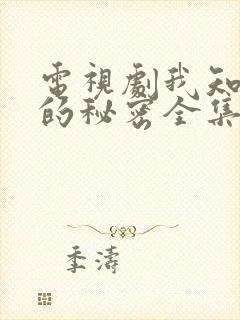 電視劇我知
的秘密全集
季濤